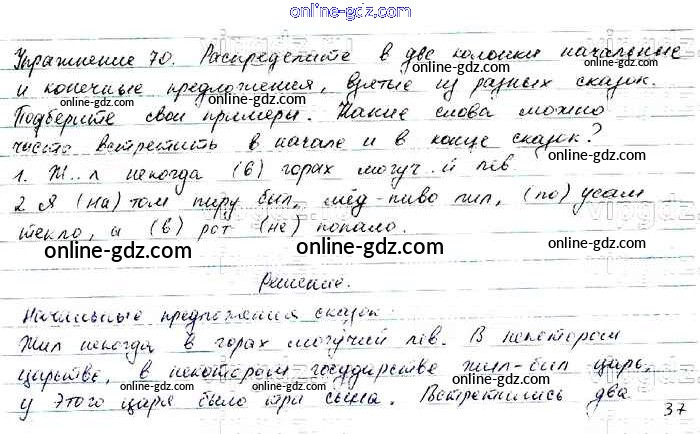 online-gdz.com
Упражнение 70. Распределите в две колонки начальные
и конечные предложения, взятые из разных сказок.
Подберите свои примеры. Какие слова можно
часто встретить в начале и в конце сказок?
1. Ж..л некогда (в) горах могуч..й лев.
2 Я (на) том пиру был, мёд-пиво пил, (по) усам
текло, а (в) рот (не) попало.
online-gdz.com
Решение.
Начальные предложения сказок:
Жил некогда в горах могучий лев. В некотором
царстве, в некотором государстве жил-был царь,
у этого царя было три сына. Встретились два
37